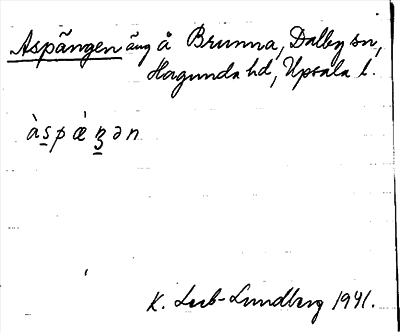 Aspängen äng å Brunna, Dalby sn,
Hagunda hd, Upsala l.
às̱pǽŋ̱ən
K. Leeb-Lundberg 1941.